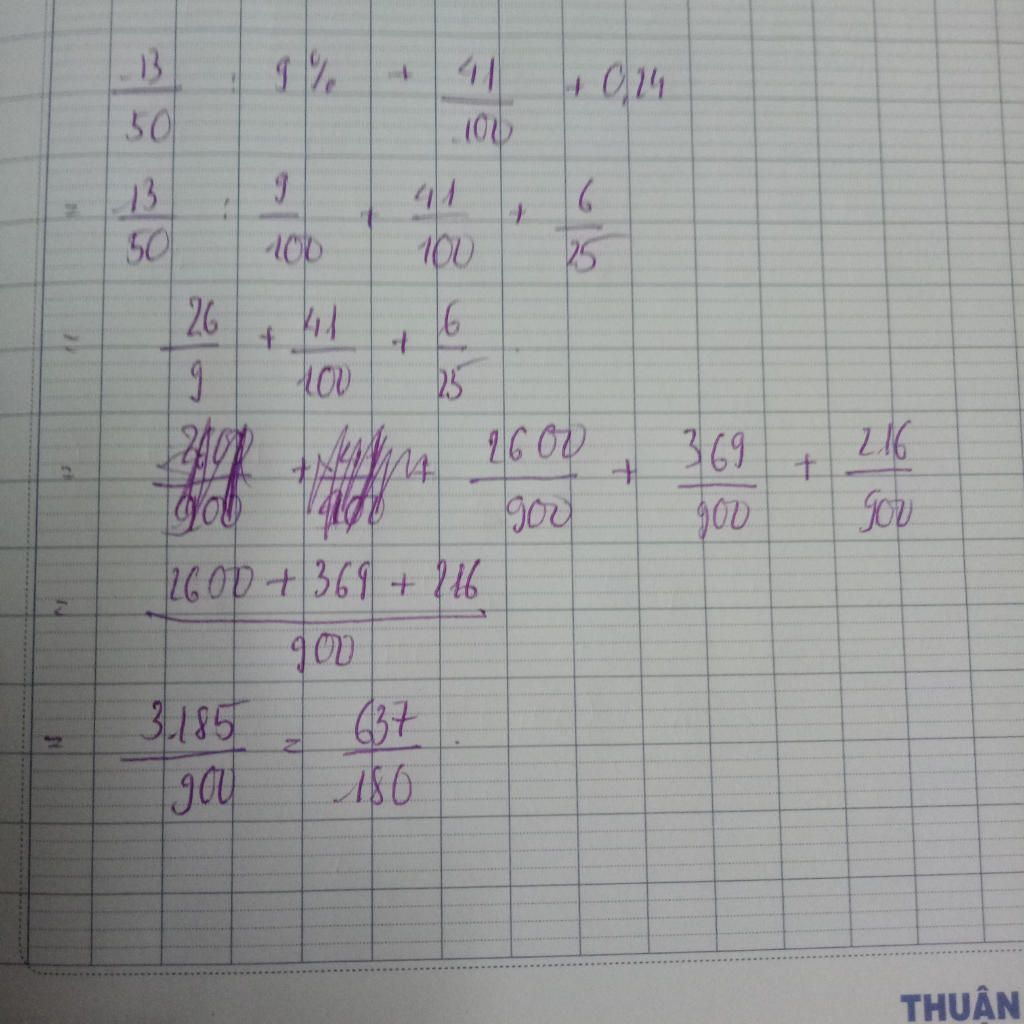 13/50 : 9% + 41/100 + 0,24
= 13/50 : 9/100 + 41/100 + 6/25
= 26/9 + 41/100 + 6/25
= 2600/900 + 369/900 + 216/900
= (2600 + 369 + 216)/900
= 3185/900 = 637/180.
THUÂN